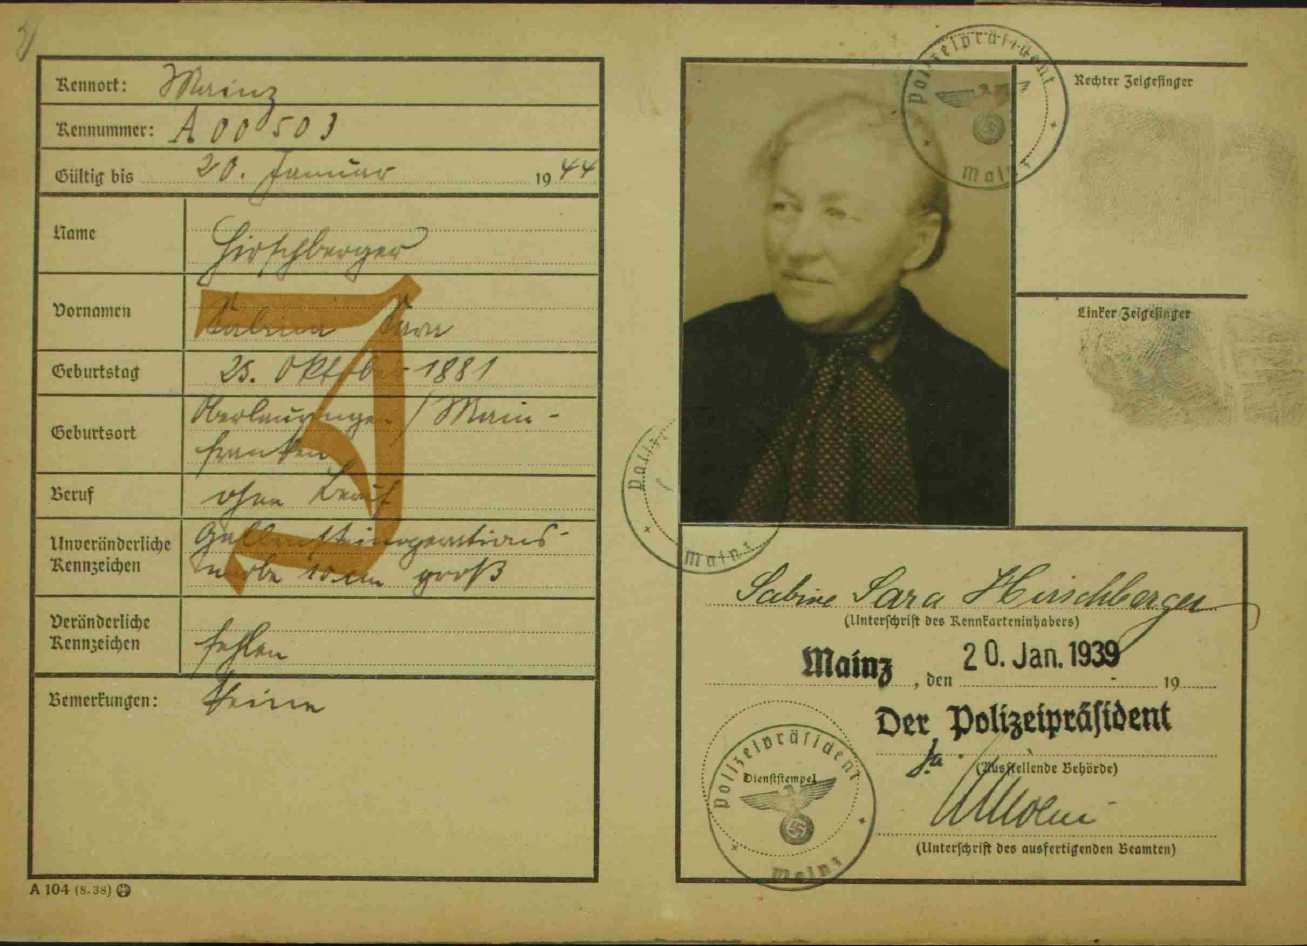 Kennort: Mainz
Kennummer: A 00503
Gültig bis 20. Januar 1944
Name Hirschberger
Vornamen Sabine Sara
Geburtstag 25. Oktober 1881
Geburtsort Oberlauringen / Main-
franken
Beruf ohne Beruf
Unveränderliche Kennzeichen Gallensteinoperations-
narbe 10 cm groß
Veränderliche Kennzeichen fehlen
Bemerkungen: Keine
J
A 104 (8. 38)
Polizeipräsident
Mainz
Rechter Zeigefinger
Linker Zeigefinger
Mainz
Sabine Sara Hirschberger
(Unterschrift des Kennkarteninhabers)
Mainz, den 20. Jan. 1939 19
Der Polizeipräsident
(Ausstellende Behörde)
Polizeipräsident
Dienststempel
Mainz
(Unterschrift des ausfertigenden Beamten)